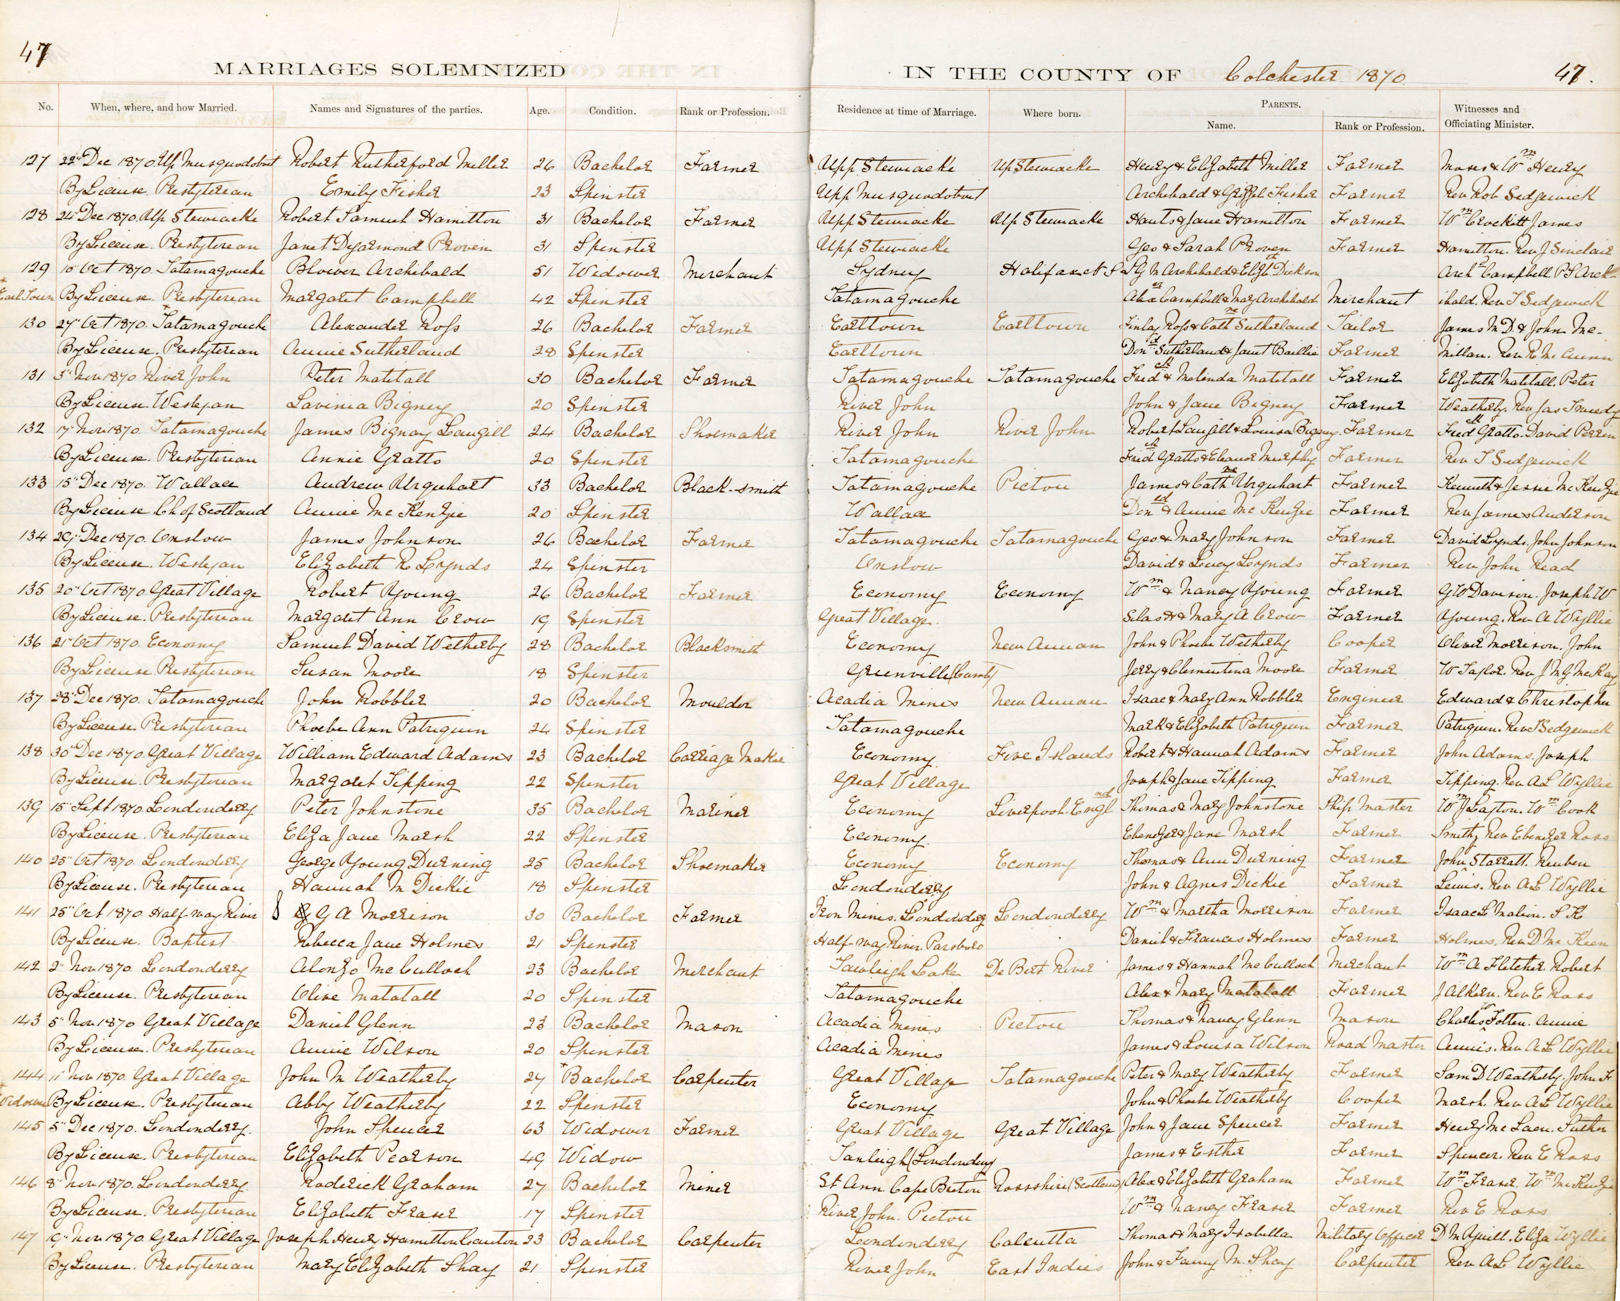 47
MARRIAGES SOLEMNIZED IN THE COUNTY OF Colchester 1870 47.
No. When, where, and how Married. Names and Signatures of the parties. Age. Condition. Rank or Profession. Residence at time of Marriage. Where born. PARENTS. Name. Rank or Profession. Witnesses and Officiating Minister.
127 22nd Dec 1870. Up Musquodoboit Robert Rutherford Miller 26 Bachelor Farmer Upp Stewiacke Up Stewiacke Henry & Elizabeth Miller Farmer Moses & Wm Henry
By License. Presbyterian Emily Fisher 23 Spinster Upp Musquodoboit Archibald & Fisher Farmer Rev Rob Sedgewick
128 24 Dec 1870. Up Stewiacke Robert Samuel Hamilton 31 Bachelor Farmer Upp Stewiacke Up Stewiacke & Jane Hamilton Farmer Wm Crockett James
By License. Presbyterian Janet Dyarmond Proven 31 Spinster Upp Stewiacke Geo & Sarah Proven Farmer Hamilton. Rev J Sinclair
129 10 Oct 1870. Tatamagouche Blower Archibald 51 Widower Merchant Sydney Halifax S G N Archibald & Elizth Dickson Arcd Campbell P S Arch-
Earl Town By License. Presbyterian Margaret Campbell 42 Spinster Tatamagouche Alex Campbell & Mary Archibald Merchant ibald. Rev T Sedgewick
130 27 Oct 1870. Tatamagouche Alexander Ross 26 Bachelor Farmer Earltown Earltown Finlay Ross & Cathne Sutherland Tailor James M D & John Mc-
By License. Presbyterian Annie Sutherland 28 Spinster Earltown Dond Sutherland & Janet Baillie Farmer Millan. Rev R McCunn
131 3 Nov 1870 River John Peter Matatall 30 Bachelor Farmer Tatamagouche Tatamagouche Fredck & Malinda Matatall Farmer Elizabeth Matatall. Peter
By License. Wesleyan Lavinia Bigney 20 Spinster River John John & Jane Bigney Farmer Weatherby. Rev Jas Tweedy
132 17 Nov 1870. Tatamagouche James Bignay Langill 24 Bachelor Shoemaker River John River John Robert Langill & Louisa Bigney Farmer Fredck Gratto. David Perrin
By License. Presbyterian Annie Gratto 20 Spinster Tatamagouche Fredck Gratto & Eleanor Murphy Farmer Rev T Sedgewick
133 15 Dec 1870. Wallace Andrew Urquhart 33 Bachelor Black-smith Tatamagouche Pictou James & Cathne Urquhart Farmer Kenneth & Jessie McKenzie
By License Ch of Scotland Annie McKenzie 20 Spinster Wallace Dond & Annie McKenzie Farmer Rev James Anderson
134 29 Dec 1870. Onslow James Johnson 26 Bachelor Farmer Tatamagouche Tatamagouche Geo & Mary Johnson Farmer David Lynds. John Johnson
By License. Wesleyan Elizabeth R Lynds 24 Spinster Onslow David & Lucy Lynds Farmer Rev John Read
135 20 Oct 1870. Great Village Robert Young 26 Bachelor Farmer Economy Economy Wm & Nancy Young Farmer G W Davison. Joseph W
By License. Presbyterian Margaret Ann Crow 19 Spinster Great Village. Silas H & Mary A Crow Farmer Young. Rev A Wyllie
136 21 Oct 1870. Economy Samuel David Wetherby 28 Bachelor Blacksmith Economy New Annan John & Phoebe Wetherby Cooper Oliver Morrison. John
By License Presbyterian Susan Moore 18 Spinster Greenville (Cumbd) Jerry & Clementina Moore Farmer W Taylor. Rev J M G McKay
137 28 Dec 1870. Tatamagouche John Robbler 20 Bachelor Moulder Acadia Mines New Annan Isaac & Mary Ann Robbler Engineer Edward & Christopher
By License. Presbyterian Phoebe Ann Patriquin 24 Spinster Tatamagouche Mark & Elizabeth Patriquin Farmer Patriquin. Rev Sedgewick
138 30 Dec 1870 Great Village William Edward Adams 23 Bachelor Carriage Maker Economy. Five Islands Robert & Hannah Adams Farmer John Adams. Joseph
By License. Presbyterian Margaret Tipping 22 Spinster Great Village Joseph & Jane Tipping Farmer Tipping. Rev A L Wyllie
139 15 Sept 1870 Londonderry Peter Johnstone 35 Bachelor Mariner Economy Liverpool. England Thomas & Mary Johnstone Ship Master Wm J Layton. Wm Cook
By License. Presbyterian Eliza Jane Marsh 22 Spinster Economy. Ebenezer & Jane Marsh Farmer Smith, Rev Ebenezer Ross
140 25 Oct 1870. Londonderry George Young Durning 25 Bachelor Shoemaker Economy Economy Thomas & Ann Durning Farmer John Starratt. Reuben
By License. Presbyterian Hannah M Dickie 18 Spinster Londonderry John & Agnes Dickie Farmer Lewis. Rev A L Wyllie
141 25 Oct 1870 Half way River G A Morrison 30 Bachelor Farmer Iron Mines. Londonderry Londonderry Wm & Martha Morrison Farmer Isaac L S K
By License. Baptist Rebecca Jane Holmes 21 Spinster Half way River. Parsboro Daniel & Frances Holmes Farmer Holmes. Rev D McKeen
142 2 Nov 1870. Londonderry Alonzo McCulloch 23 Bachelor Merchant Lake De Bert River James & Hannah McCulloch Merchant Wm A Fletcher Robert
By License. Presbyterian Olive Matatall 20 Spinster Tatamagouche Alex & Mary Matatall Farmer J Rev E Ross
143 5 Nov 1870 Great Village Daniel Glenn 23 Bachelor Mason Acadia Mines Pictou Thomas & Nancy Glenn Mason Charles Totten. Annie
By License. Presbyterian Annie Wilson 20 Spinster Acadia Mines James & Louisa Wilson Road Master Annis. Rev A L Wyllie
144 11 Nov 1870. Great Village John M Weatherby 27 Bachelor Carpenter Great Village Tatamagouche Peter & Mary Weatherby Farmer Sam D Weatherby. John F
Widower By License. Presbyterian Abby Weatherby 22 Spinster Economy John & Phoebe Weatherby Cooper Marsh. Rev A L Wyllie
145 5 Dec 1870. Londonderry. John Spencer 63 Widower Farmer Great Village Great Village John & Jane Spencer Farmer Henry McLaen. Luther
By License. Presbyterian Elizabeth Pearson 49 Widow (Londonderry James & Esther Farmer Spencer. Rev E Ross
146 8 Nov 1870. Londonderry Roderick Graham 27 Bachelor Miner St Ann Cape Breton Rossshire (Scotland) Alex & Elizabeth Graham Farmer Wm Fraser. Wm McKenzie
By License. Presbyterian Elizabeth Fraser 17 Spinster River John. Pictou Wm & Nancy Fraser Farmer Rev E Ross
147 10 Nov 1870 Great Village Joseph Henry Hamilton Causton 23 Bachelor Carpenter Londonderry Calcutta Thomas & Mary Isabella Military Officer D McQuill. Eliza Wyllie
By License. Presbyterian Mary Elizabeth Shay 21 Spinster River John East Indies John & Fanny M Shay Carpenter Rev A L Wyllie